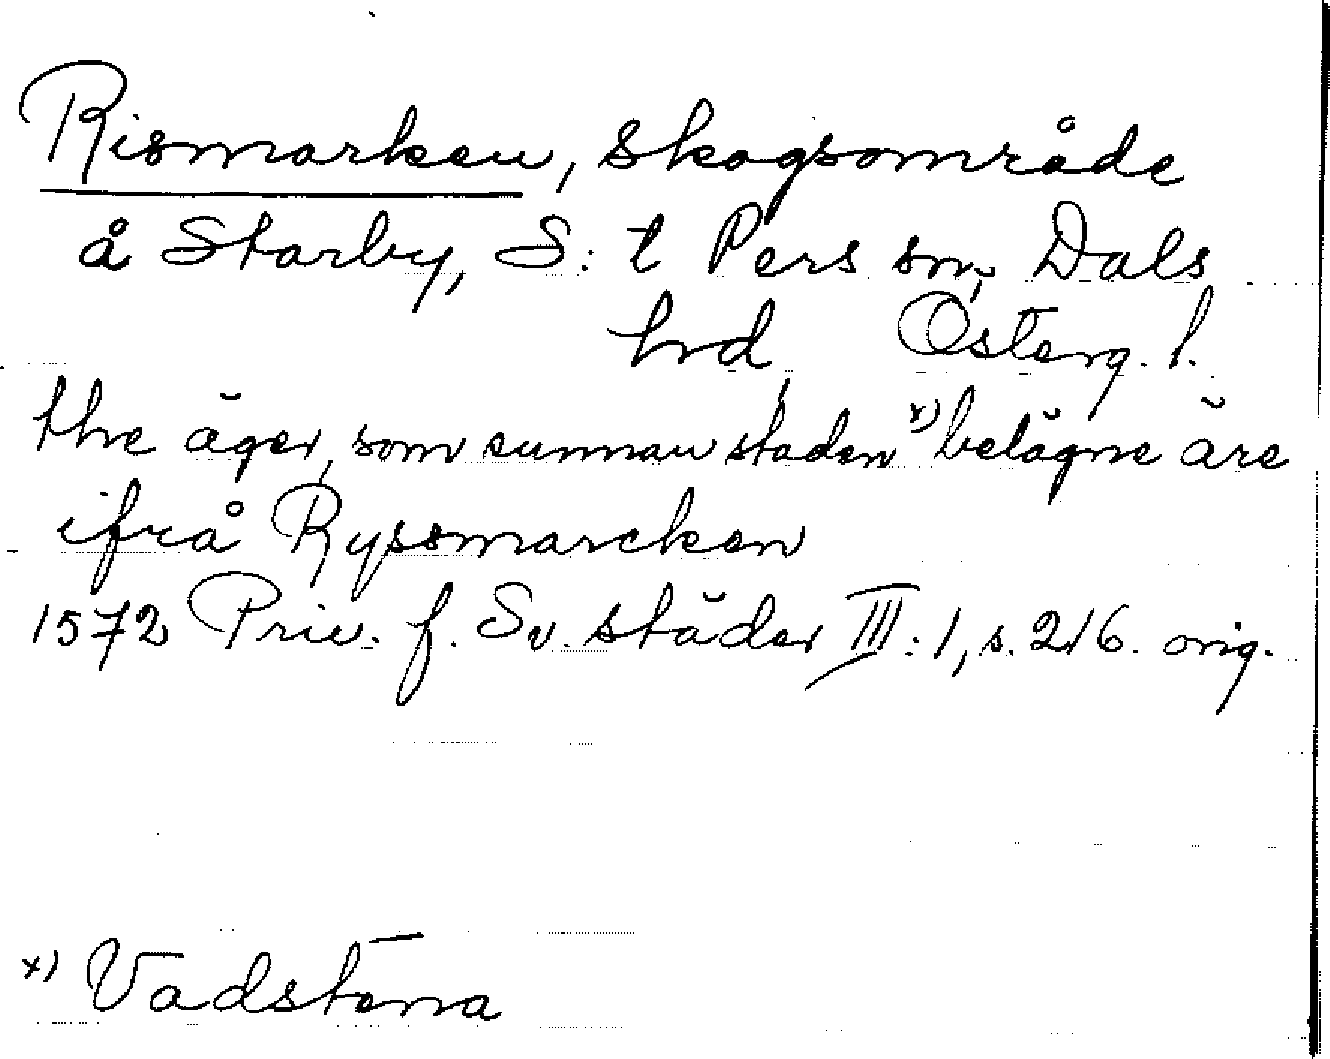 Rismarken, skogsområde
å Starby, S:t Pers sn, Dals
hrd, Österg. l.
the äger, som sunnan staden x) belägne äre
ifrå Ryssmarcken
1572 Priv. f. Sv. städer III:1, s. 216. orig.
x) Vadstena